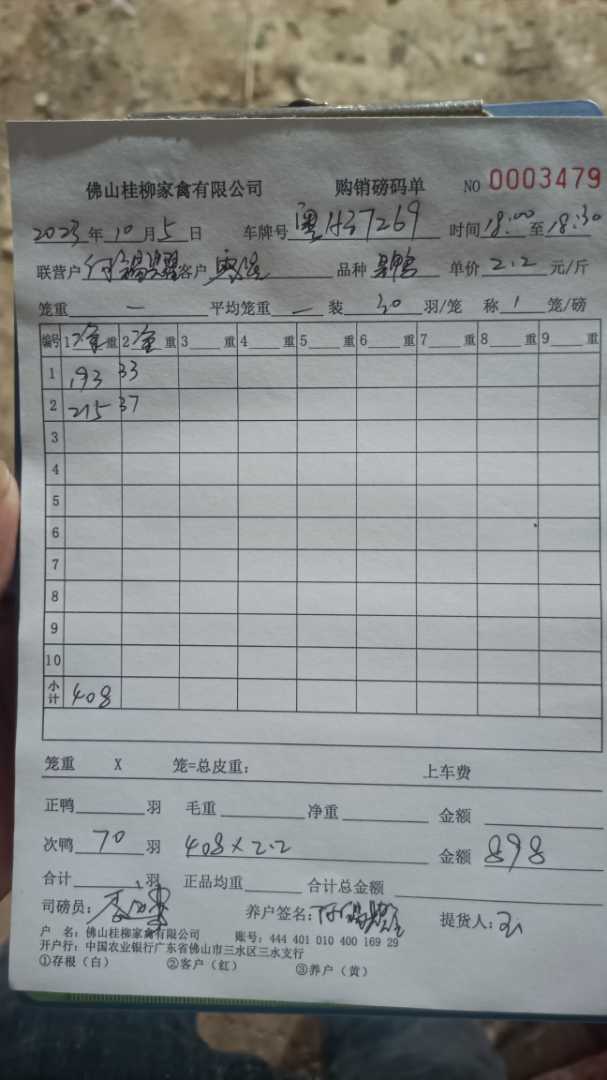 佛山桂柳家禽有限公司 购销磅码单 NO 0003479
2023年10月5日 车牌号 粤H37269 时间18:00至18:30
联营户 客户 品种 单价2.2元/斤
笼重 — 平均笼重 — 装 30 羽/笼 称 1 笼/磅
编号 1 净重 2 净重 3 重 4 重 5 重 6 重 7 重 8 重 9 重
1 193 33
2 215 37
3
4
5
6
7
8
9
10
小计 408
笼重 X 笼=总皮重: 上车费
正鸭 羽 毛重 净重 金额
次鸭 70 羽 408×2.2 金额 898
合计 羽 正品均重 合计总金额
司磅员: 养户签名: 提货人:
户 名: 佛山桂柳家禽有限公司 账号: 444 401 010 400 169 29
开户行: 中国农业银行广东省佛山市三水区三水支行
①存根(白) ②客户(红) ③养户(黄)